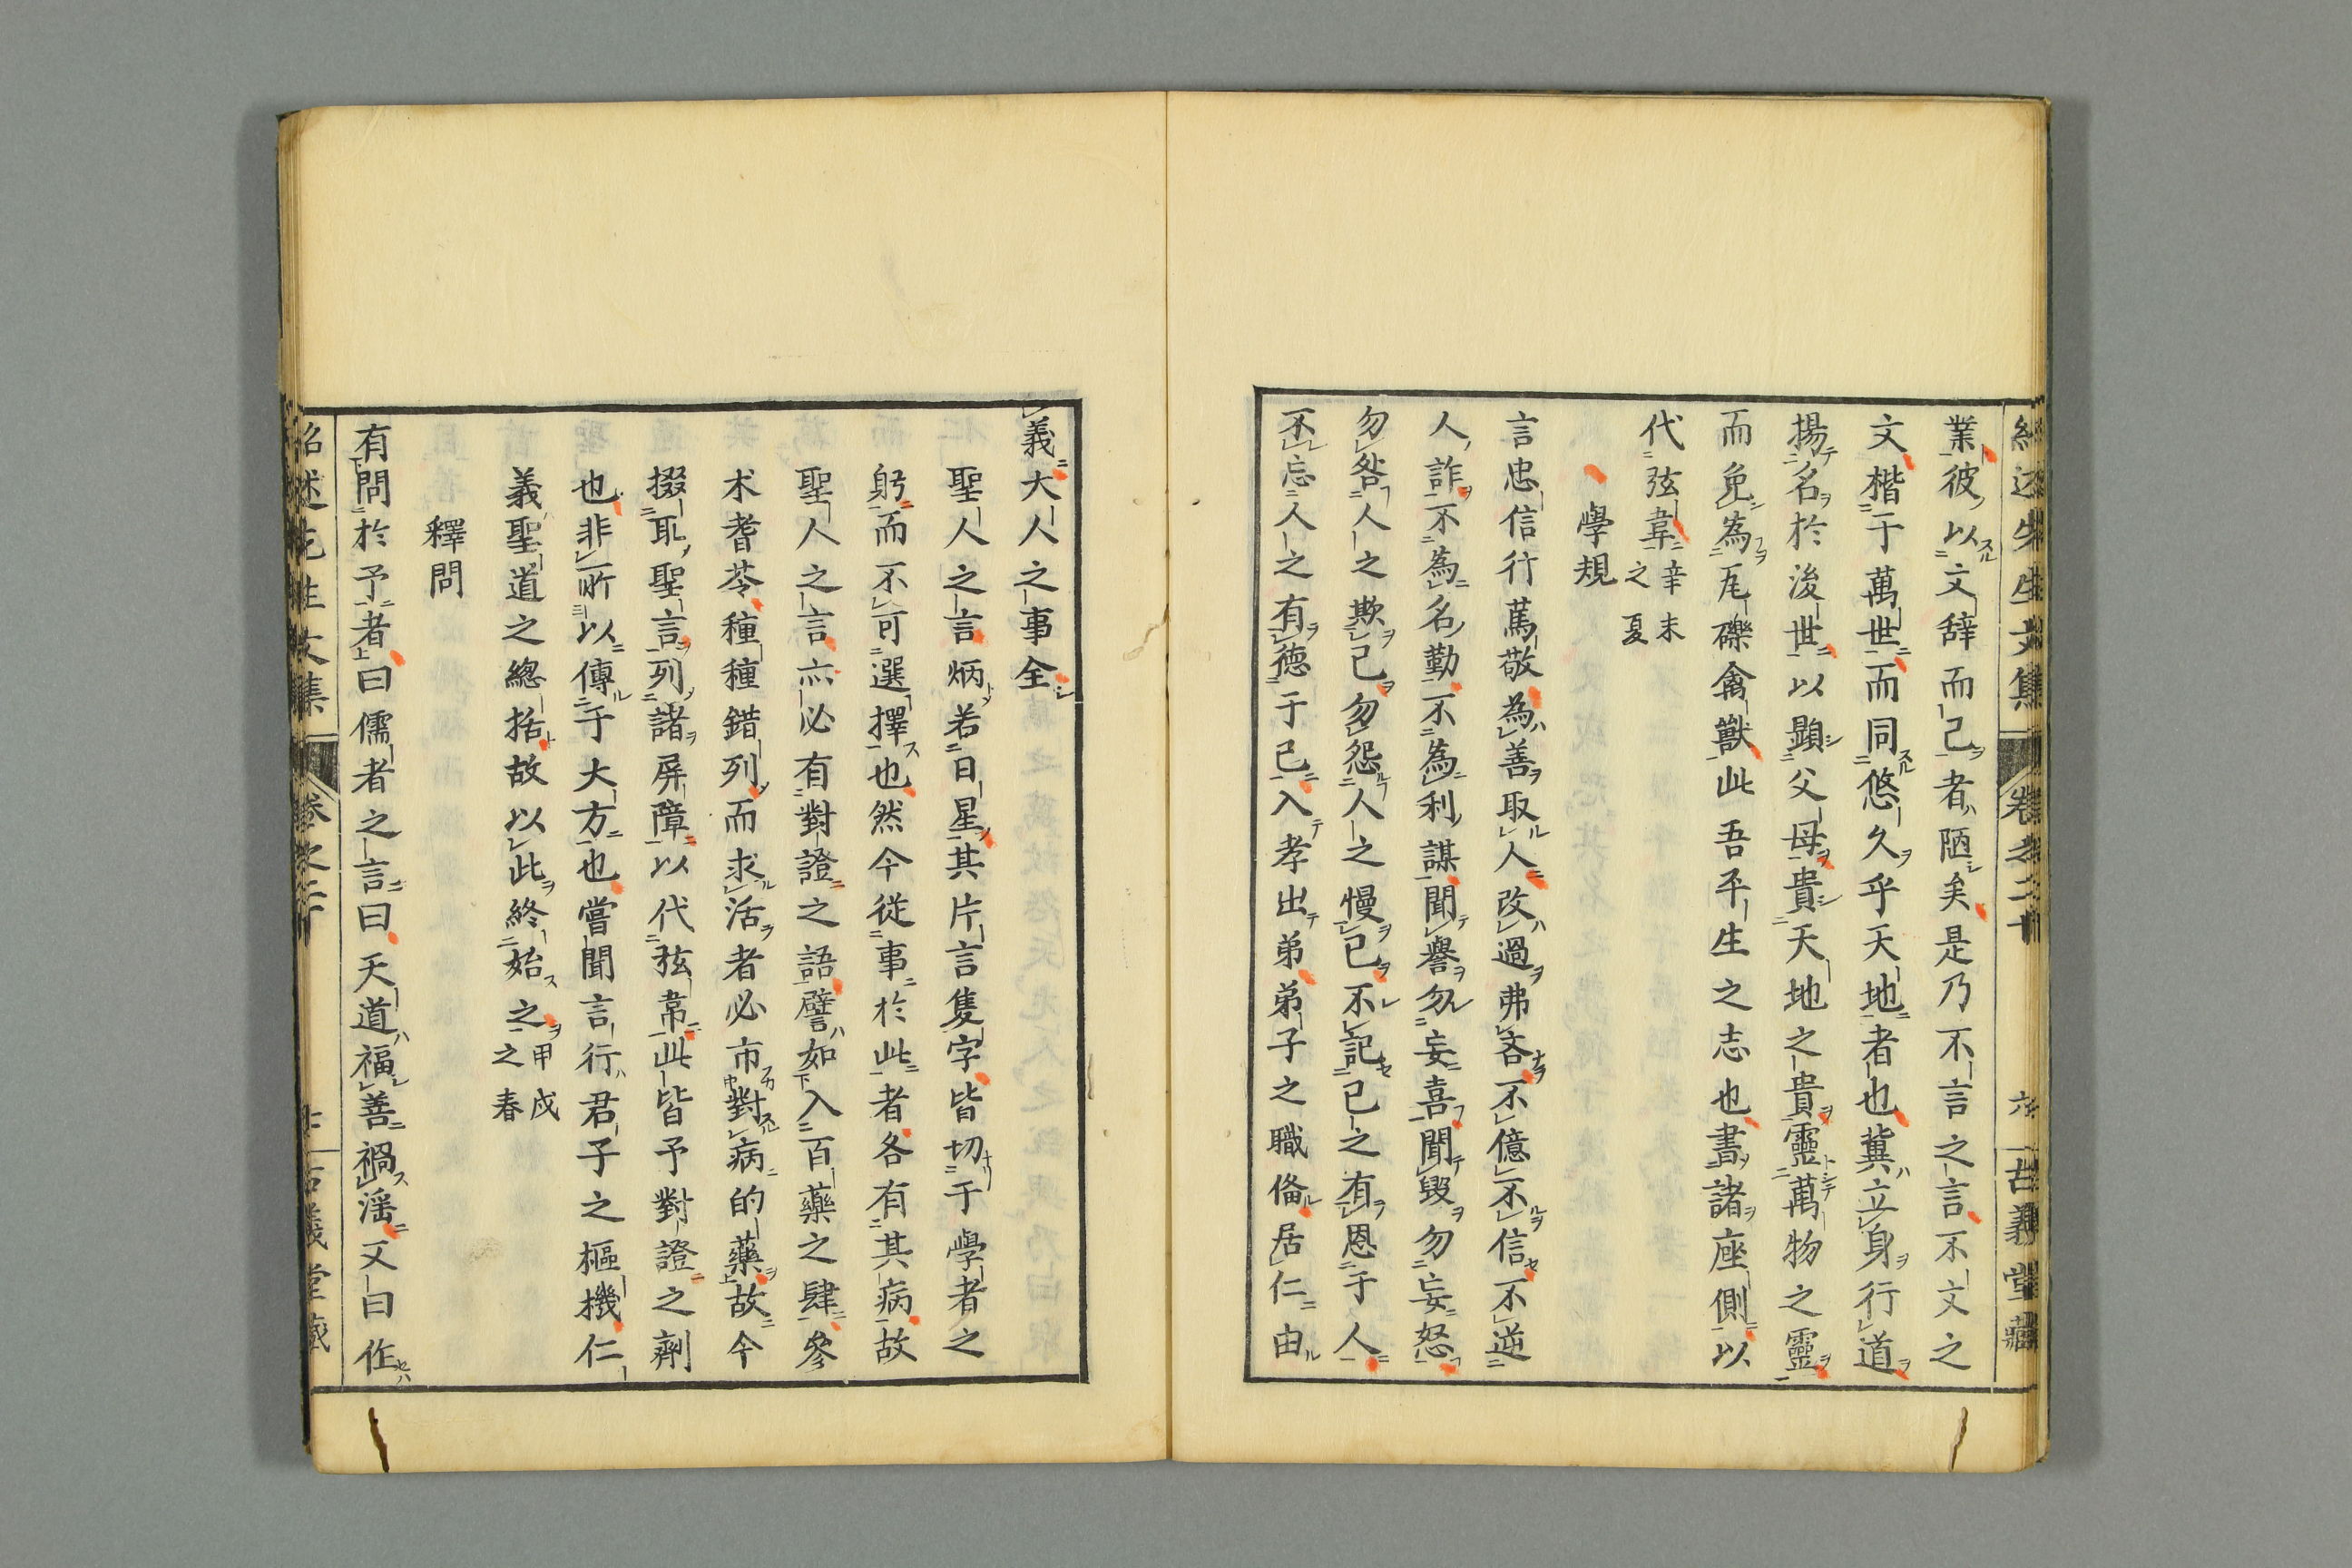 紹述先生文集 卷之二十 六 古義堂藏
業彼以文辭而已者陋矣是乃不言之言不文之
文楷于萬世而同悠久乎天地者也冀立身行道
揚名於後世以顕父母貴天地之貴靈萬物之靈
而免為瓦礫禽獸此吾平生之志也書諸座側以
代弦韋辛未之夏
學規
言忠信行篤敬為善取人改過弗吝不億不信不逆
人詐不為名勤不為利謀聞譽勿妄喜聞毀勿妄怒
勿咎人之欺己勿怨人之慢己不記己之有恩于人
不忘人之有德于己入孝出弟弟子之職俻居仁由
義大人之事全
聖人之言炳若日星其片言隻字皆切于學者之
躬而不可選擇也然今従事於此者各有其病故
聖人之言亦必有對證之語譬如入百藥之肆參
术耆苓種種錯列而求活者必市對病的藥故今
掇取聖言列諸屏障以代弦韋此皆予對證之劑
也非所以傳于大方也嘗聞言行君子之樞機仁
義聖道之總括故以此終始之甲戌之春
釋問
有問於予者曰儒者之言曰天道福善禍淫又曰作
紹述先生文集 卷之二十 七 古義堂藏